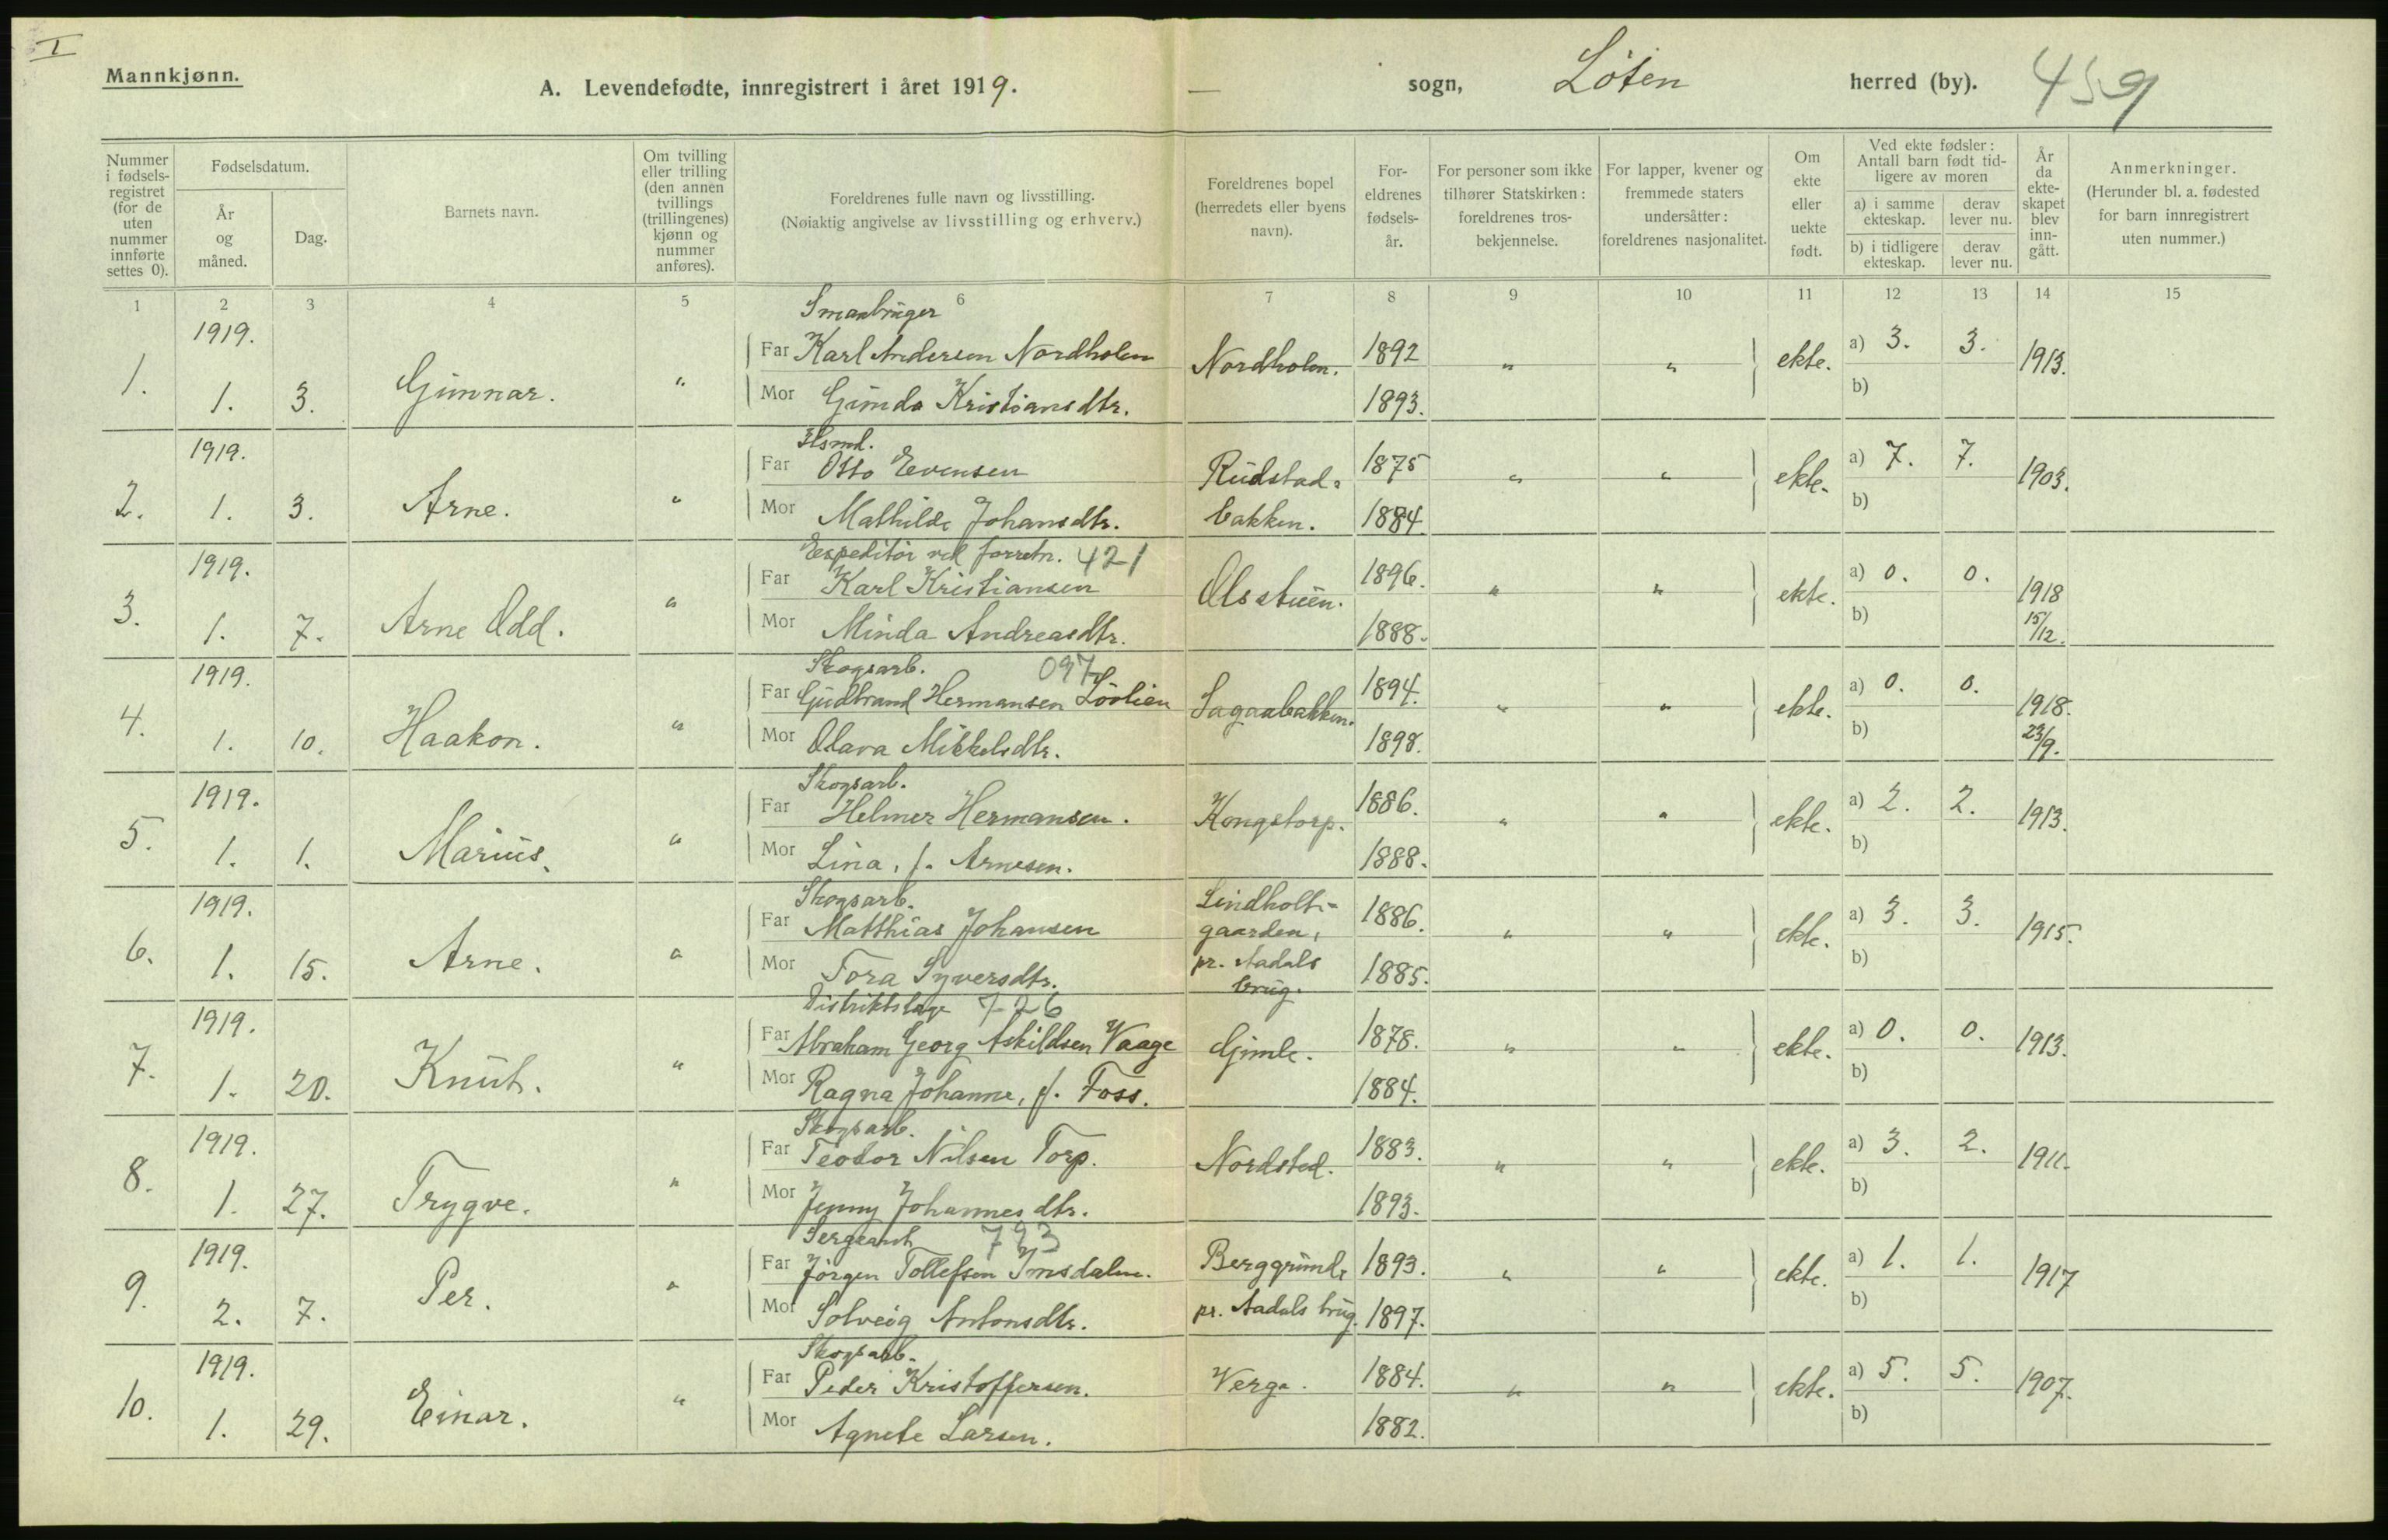 I
Mannkjønn.
A. Levendefødte, innregistrert i året 1919. — sogn, Löten herred (by). 459
Nummer i fødsels-registret (for de uten nummer innførte settes 0).
Fødselsdatum.
År og måned.
Dag.
Barnets navn.
Om tvilling eller trilling (den annen tvillings (trillingenes) kjønn og nummer anføres).
Foreldrenes fulle navn og livsstilling.
(Nøiaktig angivelse av livsstilling og erhverv.)
Foreldrenes bopel (herredets eller byens navn).
For-eldrenes fødsels-år.
For personer som ikke tilhører Statskirken: foreldrenes tros-bekjennelse.
For lapper, kvener og fremmede staters undersåtter: foreldrenes nasjonalitet.
Om ekte eller uekte født.
Ved ekte fødsler: Antall barn født tid-ligere av moren
a) i samme ekteskap.
derav lever nu.
b) i tidligere ekteskap.
derav lever nu.
År da ekte-skapet blev inn-gått.
Anmerkninger.
(Herunder bl. a. fødested for barn innregistrert uten nummer.)
1 2 3 4 5 6 7 8 9 10 11 12 13 14 15
Smaabrüger
1. 1919. 1. 3. Günnar. " Far Karl Andersen Nordholen Nordholen. 1892 " " ekte. a) 3. 3. 1913.
Mor Günda Kristiansdtr. 1893. b)
Hsmd.
2. 1919. 1. 3. Arne. " Far Otto Evensen Rüdstad- 1875 " " ekte. a) 7. 7. 1903.
Mor Mathilde Johansdtr. bakken. 1884. b)
Expeditör ved forretn. 421
3. 1919. 1. 7. Arne Odd. " Far Karl Kristiansen Olsstüen. 1896. " " ekte. a) 0. 0. 1918
Mor Minda Andreasdtr. 1888. b) 15/12.
Skogsarb. 097
4. 1919. 1. 10. Haakon. " Far Güdbrand Hermansen Lövlien Sagaabakken. 1894. " " ekte. a) 0. 0. 1918.
Mor Olava Mikkelsdtr. 1898. b) 23/9.
Skogsarb.
5. 1919. 1. 1. Mariüs. " Far Helmer Hermansen. Kongstorp. 1886. " " ekte. a) 2. 2. 1913.
Mor Lina, f. Arnesen. 1888. b)
Skogsarb.
6. 1919. 1. 15. Arne. " Far Matthias Johansen Lindholts-gaarden, 1886. " " ekte. a) 3. 3. 1915.
Mor Tora Syversdtr. pr. Aadals brüg. 1885. b)
Distriktslæge 726
7. 1919. 1. 20. Knüt. " Far Abraham Georg Askildsen Vaage Gimle. 1878. " " ekte. a) 0. 0. 1913.
Mor Ragna Johanne, f. Foss. 1884. b)
Skogsarb.
8. 1919. 1. 27. Trygve. " Far Teodor Nilsen Torp. Nordstad. 1883. " " ekte. a) 3. 2. 1911.
Mor Jenny Johannesdtr. 1893. b)
Sergeant 793
9. 1919. 2. 7. Per. " Far Jörgen Tollefsen Imsdalen. Berggründ, 1893. " " ekte. a) 1. 1. 1917
Mor Solveig Antonsdtr. pr. Aadals brüg. 1897. b)
Skogsarb.
10. 1919. 1. 29. Einar. " Far Peder Kristoffersen. Verga. 1884. " " ekte. a) 5. 5. 1907.
Mor Agnete Larsen. 1882. b)